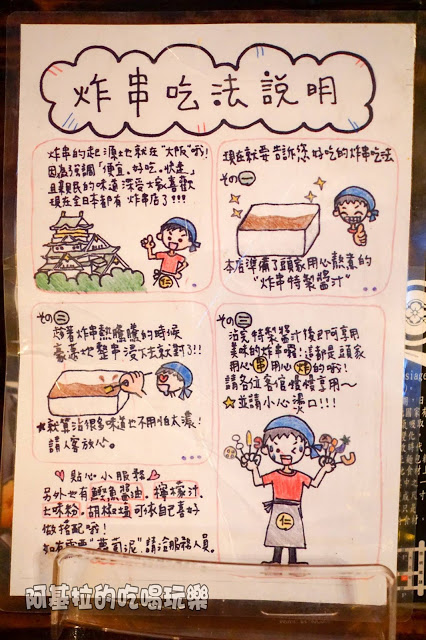 炸串吃法說明
炸串的起源地就在"大阪"哦!
因為強調「便宜、好吃、快走」
且親民的味道深受大家喜歡
現在全日本都有炸串店了!!!
仁
現在就要告訴您好吃的炸串吃法
その一
本店準備了頭家用心熬煮的
"炸串特製醬汁"
その二
趁著炸串熱騰騰的時候
豪邁地整串浸下去就對了!!
★就算沾很多味道也不用怕太濃!
請人客放心。
その三
沾完特製醬汁後即可享用
美味的炸串囉!這都是頭家
用心串用心炸的哦!
請各位客倌慢慢享用~
★並請小心燙口!!!
仁
♥貼心小服務♥
另外也有鰹魚醬油、檸檬汁、
七味粉、胡椒鹽可依自己喜好
做搭配哦!
如有需要"蘿蔔泥"請洽服務人員。
阿基拉的吃喝玩樂